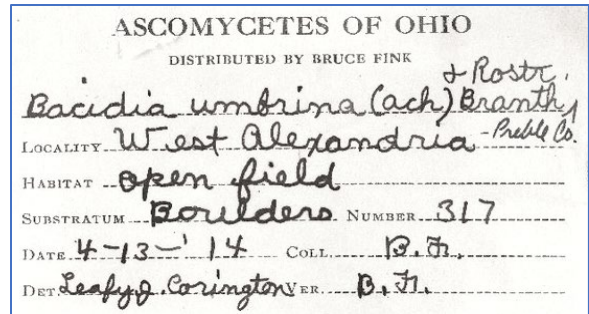 ASCOMYCETES OF OHIO
DISTRIBUTED BY BRUCE FINK
& Rostr.
Bacidia umbrina (ach) Branth
LOCALITY West Alexandria - Preble Co.
HABITAT open field
SUBSTRATUM Boulders NUMBER 317
DATE 4-13-'14 COLL. B. Fn.
DET. Leafy J. Corington VER. B. Fn.